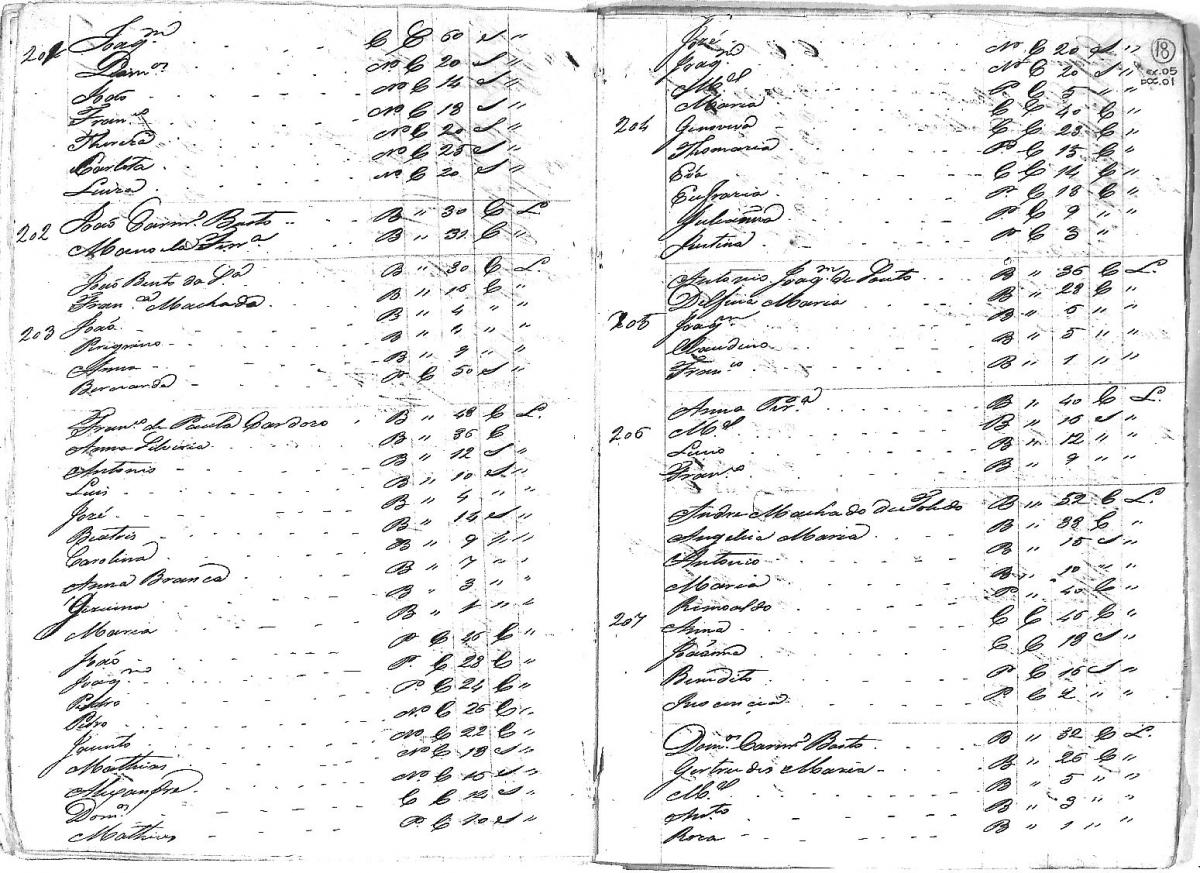 201 Joaqᵐ C C 60 S "
Domᵒˢ Nº C 20 S "
João Nº C 14 S "
Franᶜᵒ Nº C 18 S "
Thereza Nº C 20 S "
Carlota Nº C 25 S "
Luiza Nº C 20 S "
202 João Carnrº Basto B " 30 C L.
Manoela B " 32 C "
João Bento da Sª B " 30 C L.
Franᶜᵃ Machada B " 16 C "
203 João B " 4 " "
Perigrino B " " " "
Anna B " 9 " "
Bernarda P C 50 S "
Franᶜᵒ de Paula Cardozo B " 48 C L.
Anna Silviria B " 36 C
Antonio B " 12 S "
Luis B " 10 S "
José B " 4 " "
Beatris B " 14 S "
Carolina B " 9 " "
Anna Branca B " 7 "
B " 3 " "
Maria B " 1 " "
João P C 26 C "
Joaqᵐ P C 23 C "
Pedro P C 24 C "
Pedro Nº C 26 C "
Nº C 22 C "
Mathias Nº C 18 S "
Alexandre Nº C 16 S "
Domᵒˢ C C 12 S "
Mathias P C 10 S "
18
cx.05
DOC.01
José Nº C 20 S "
Joaqᵐ Nº C 20 S "
Mᵉˡ P C 5 " "
Maria C C 40 C "
204 Genoveva C C 23 C "
Thomazia P C 15 C "
Eva C C 14 C "
Eufrazia P C 18 C "
P C 9 " "
Justina P C 3 " "
Antonio Joaqᵐ de Souto B " 36 C L.
Delfina Maria B " 23 C "
205 Joaqᵐ B " 6 " "
Claudino B " 5 " "
Franᶜᵒ B " 1 " "
Anna Pirᵃ B " 40 C L.
206 Mᵉˡ B " 16 S "
Lino B " 12 " "
Franᶜᵒ B " 9 " "
Andre Machado de Toledo B " 52 C L.
Angelica Maria B " 38 C "
Antonio B " 15 S "
Maria B " 10 " "
Rimoaldo P " 40 C "
207 Anna C C 46 C "
Joanna C C 18 S "
Benedito P C 16 S "
Inocencia P C 2 " "
Domᵒˢ Carnrº Basto B " 32 C L.
Gertrudis Maria B " 26 C "
Mᵉˡ B " 5 " "
Antᵒ B " 3 " "
Roza B " 1 " "